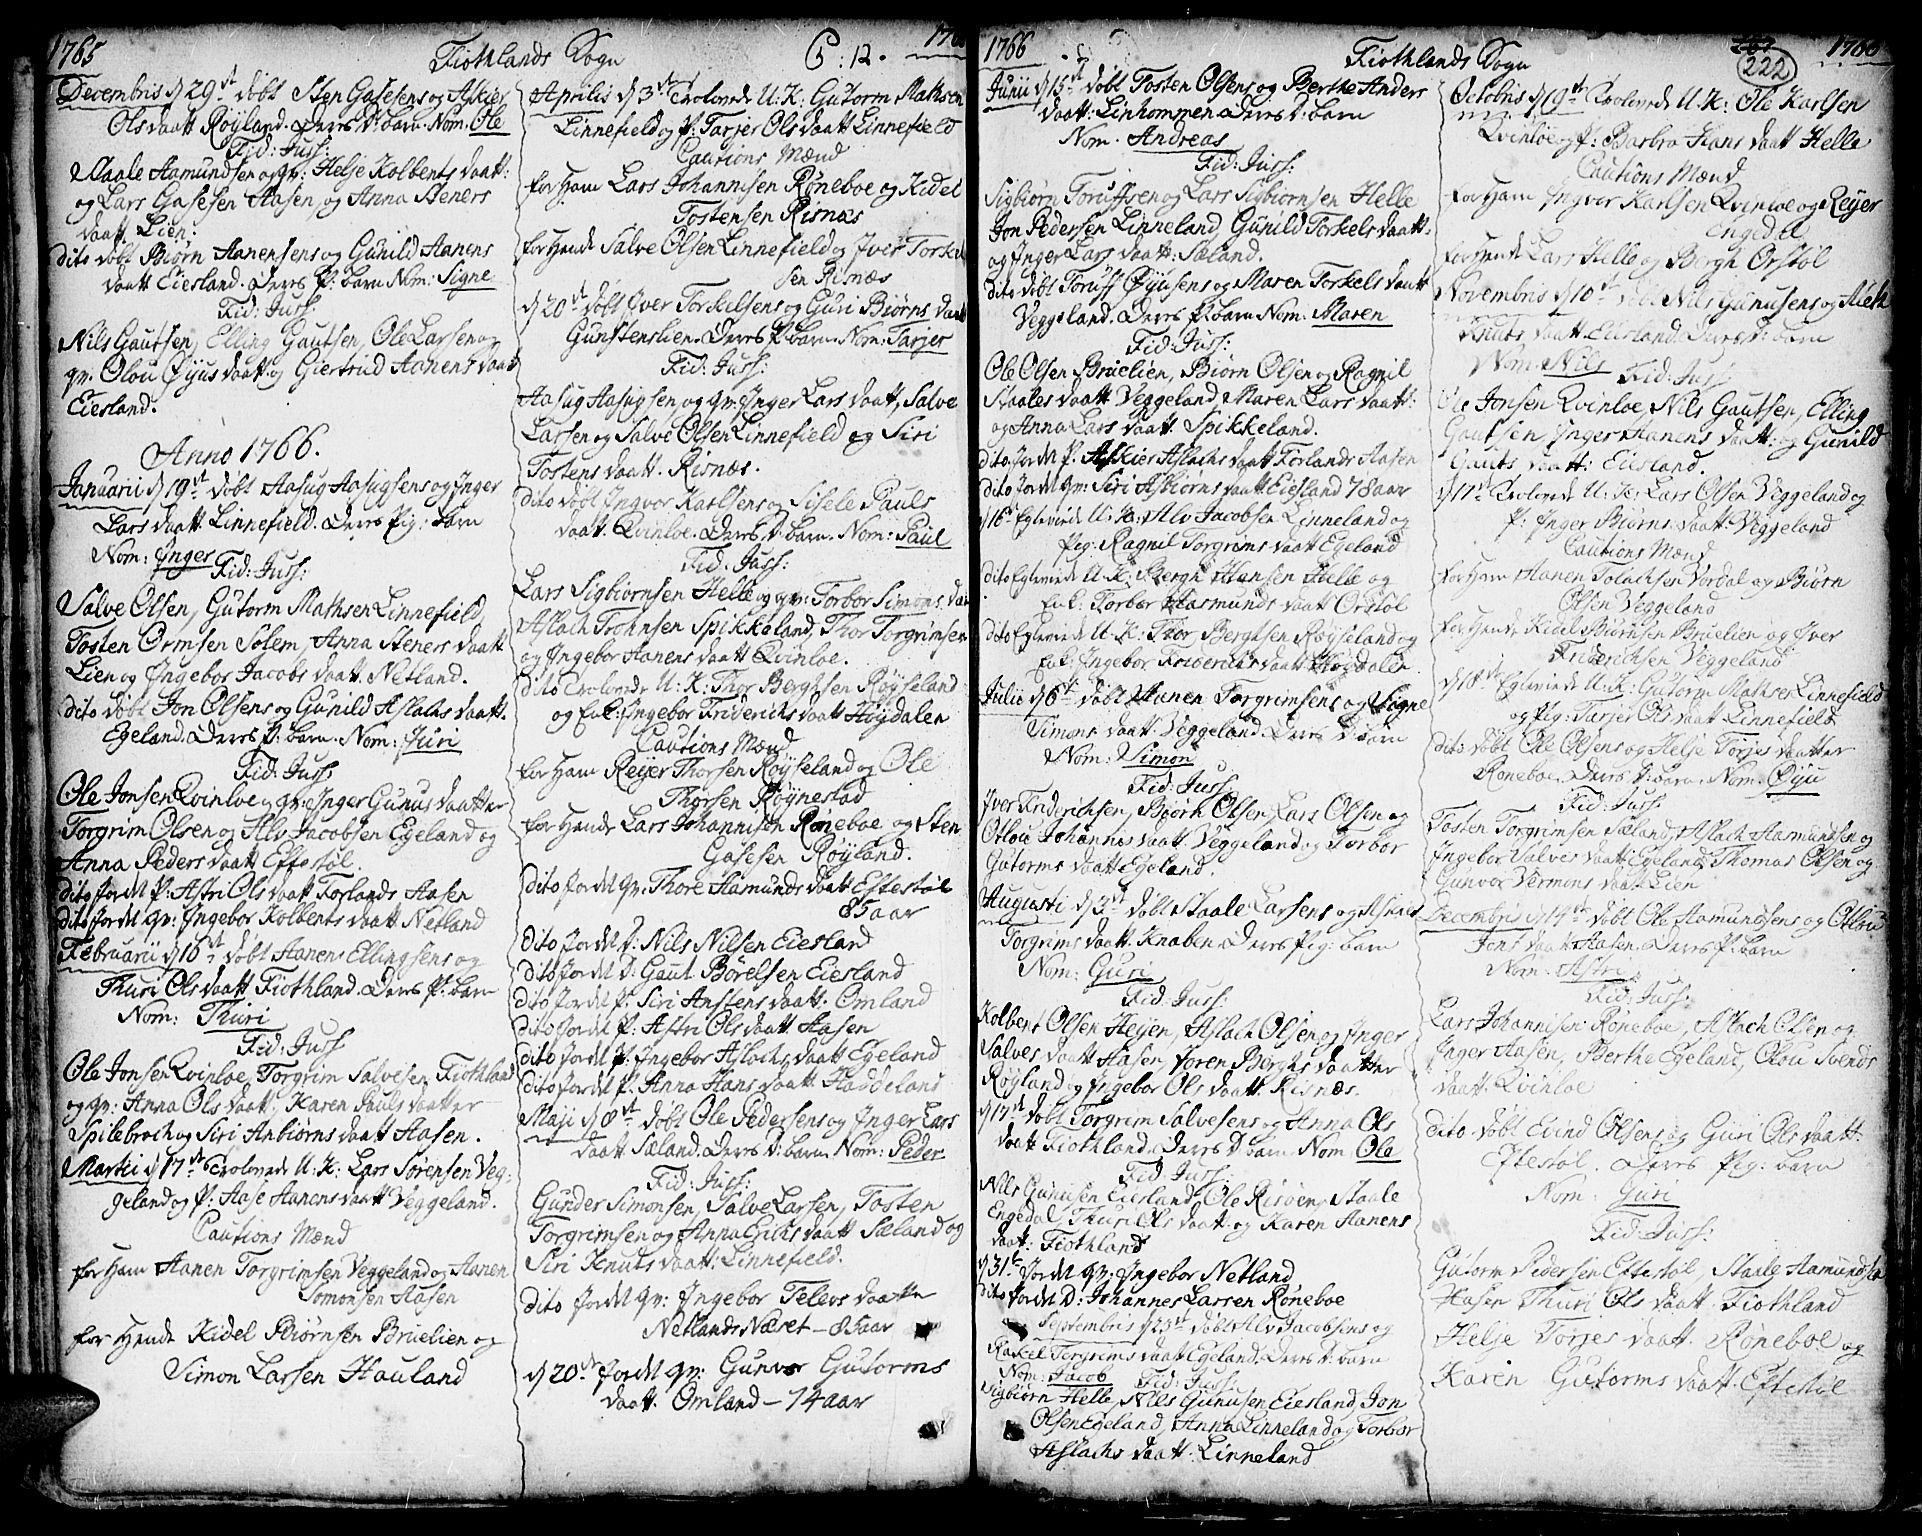 1765 Fiothlands Sogn G: 12. 176
Decembris d 29st døbt Sten Gasesens og Askier
Ols daatt Røyland. Deres D: barn Nom: Ole
Fid: Juss:
Staale Aamundsen og qv: Helje Kolbents daatt:
og Lars Gasesen Aasen og Anna Steners
daatt Lien:
dito døbt Biørn Aanensens og Gunild Aanens
daatt Eiesland. Deres P: barn Nom: Signe
Fid: Juss:
Nils Gautsen, Elling Gautsen, Ole Larsen og
qv. Olou Øyus daatt og Giertrud Aanens daatt
Eiesland.
Anno 1766.
Januarii d 19st døbt Aasug Aasugsens og Inger
Lars daatt Linnefield. Deres Pig: barn
Nom: Inger
Fid: Juss:
Salve Olsen, Gutorm Mathsen Linnefield,
Tosten Ormsen Solem, Anna Steners daatt
Lien og Ingebor Jacobs daatt. Netland.
dito døbt Jon Olsens og Gunild Aslachs daatt.
Egeland. Deres P: barn. Nom: Juri
Fid: Juss:
Ole Jonsen Qvinloe og qv: Inger Gunus daatter
Torgrim Olsen og Alv Jacobsen Egeland og
Anna Peders daatt Eftestøl.
dito jordet P: Astri Ols daatt Forlands Aasen
dito jordet qv: Ingebor Kolbents daatt Netland
Februarii d 16st døbt Aanen Ellingsens og
Thuri Ols daatt Fiothland. Deres P: barn
Nom: Thuri
Fid: Juss
Ole Jonsen Qvinloe, Torgrim Salvesen Fiothland
og qv: Anna Ols daatt, Karen Pauls daatter
Spilebroch og Siri Anbiørns daatt Aasen.
Martii d 17de Trolovede U: K: Lars Sørensen Veg-
geland og P: Aase Aanens daatt Veggeland.
Cautions Mænd
for Ham Aanen Torgrimsen Veggeland og Aanen
Somonsen Aasen
for Hende Kidel Biørnsen Bruelien og
Simon Larsen Hauland
Aprilis d 3st Trolovede U: K: Gutorm Mathsen
Linnefield og P: Tarjer Ols daatt Linnefield
Cautions Mænd
for Ham Lars Johannisen Røneboe og Kidel
Tostensen Risnæs
for Hende Salve Olsen Linnefield og Iver Torkel
sen Risnæs
d 20st døbt Iver Torkelsens og Guri Biørns daatt
Gunstenslien. Deres P: barn. Nom: Tarjer
Fid: Juss:
Aasug Aasugsen og qv: Inger Lars daatt, Salve
Larsen og Salve Olsen Linnefield og Siri
Tostens daatt. Risnæs.
dito døbt Ingvor Karlsens og Sisele Pauls
daatt. Qvinloe. Deres D: barn. Nom: Paul
Fid: Juss:
Lars Sigbiørnsen Helle og qv: Torbor Simons daa
Aslach Trohnsen Spikkeland, Thor Torgrimsen
og Ingebor Aanens daatt Qvinloe.
dito Trolovede U: K: Thor Berghsen Røyseland
og Enk: Ingebor Friderichs daatt Høydalen
Cautions Mænd
for Ham Reijer Thorsen Røyseland og Ole
Thorsen Røynestad
for Hende Lars Johannisen Røneboe og Sten
Gasesen Røyland.
dito jordet qv: Thore Aamunds daatt Eftestøl
85 aar
dito jordet D: Nils Nilsen Eiesland
dito jordet D: Gaut Børelsen Eiesland
dito jordet P: Siri Anstens daatt. Omland
dito jordet P: Astri Ols daatt Aasen
dito jordet P: Ingebor Aslachs daatt Egeland
dito jordet P: Anna Hans daatt Haddeland
Maji d 8st døbt Ole Pedersens og Inger Lars
daatt Sæland. Deres D: barn Nom: Peder
Fid: Juss:
Gunder Simonsen, Salve Larsen, Tosten
Torgrimsen og Anna Erichs daatt Sæland og
Siri Knuts daatt: Linnefield.
dito jordet qv: Ingebor Televs daatter
Netlands Næset – 85 aar
d 20de jordet qv: Gunvor Gutorms
daatt. Omland – 74 aar
1766 Fiothlands Sogn 222 1766
Junii d 15st døbt Tosten Olsens og Berthe Anders
daatt: Linhommen. Deres D: barn
Nom. Andreas
Fid: Juss:
Sigbiørn Torufsen og Lars Sigbiørnsen Helle
Jon Pedersen Linneland, Gunild Torkels daatt.
og Inger Lars daatt: Sæland.
dito døbt Toruff Øyusens og Maren Torkels daatt
Veggeland. Deres P: barn Nom: Maren
Fid: Juss:
Ole Olsen Bruelien, Biørn Olsen og Ragnil
Staales daatt Veggeland, Maren Lars daatt:
og Anna Lars daatt Spikkeland.
dito jordet P: Askier Aslachs daatt Forlands Aasen
dito jordet qv: Siri Asbiørns daatt Eiesland 78 aar
d 16de Egteviede U: K: Alv Jacobsen Linneland og
Pig: Ragnil Torgrims daatt Egeland
dito Egteviede U: K: Bergh Hansen Helle og
Enk: Torbor Aasmunds daatt Ørstøl
dito Egteviede U: K: Thor Berghsen Røyseland og
Enk: Ingebor Friderichs daatt Høydalen
Julii d 6st døbt Aanen Torgrimsens og Signe
Simons daatt Veggeland. Deres D: barn
Nom: Simon
Fid: Juss:
Iver Friderichsen, Biørn Olsen, Lars Olsen og
Otlou Johannes daatt Veggeland og Torbor
Gutorms daatt Egeland.
Augusti d 3st døbt Staale Larsens og Askier
Torgrims daatt. Knaben. Deres Pig: barn
Nom: Guri
Fid: Juss:
Kolbent Olsen Heyen, Aslach Olsen og Inger
Salves daatt Aasen, Joren Berghs daatter
Røyland og Ingebor Ols daatt Risnæs.
d 17st døbt Torgrim Salvesens og Anna Ols
daatt Fiothland. Deres D: barn Nom Ole
Fid: Juss:
Nils Gunusen Eiesland, Ole Risøen, Staale
Engedal, Thuri Ols daatt: og Karen Aanens
daat: Fiothland
d 31te jordet qv: Ingebor Netland
dito jordet D: Johannes Larsen Røneboe
Septembris d 23st døbt Alv Jacobsens og
Rackel Torgrims daatt Egeland. Deres D: barn
Nom: Jacob Fid: Juss:
Sigbiørn Helle, Nils Gunusen Eiesland, Jon
Olsen Egeland, Anna Linneland og Torbor
Aslachs daatt. Linneland
Octobris d 19st Trolovede U: K: Ole Karlsen
Qvinloe og P: Barbro Hans daatt Helle
Cautions Mænd
for Ham Ingvor Karlsen Qvinloe og Reijer
Engedal
for Hende Lars Helle og Bergh Ørstøl
Novembris d 10st døbt Nils Gunusens og
Knuts daatt. Eiesland. Deres D: barn
Nom: Nils Fid: Juss
Ole Jonsen Qvinloe, Nils Gautsen, Elling
Gautsen, Inger Aanens daatt: og Gunild
Gauts daatt: Eiesland.
d 17st Trolovede U: K: Lars Olsen Veggeland og
P: Inger Biørns daatt: Veggeland
Cautions Mænd
for Ham Aanen Tolachsen Vordal og Biørn
Olsen Veggeland
for Hende Kidel Biørnsen Bruelien og Iver
Friderichsen Veggeland
d 18de Egteviede U: K: Gutorm Mathsen Linnefield
og Pig: Tarjer Ols daatt Linnefield
dito døbt Ole Olsens og Helje Torjes daatter
Røneboe. Deres D: barn. Nom: Øyu
Fid: Juss:
Tosten Torgrimsen Sæland, Aslach Aamundsen og
Ingebor Salves daatt: Egeland, Thomas Olsen og
Gunvor Vermons daatt Lien
Decembris d 14st døbt Ole Aamundsens og Otlou
Jons daatt Aasen. Deres P: barn
Nom: Astri
Fid: Juss:
Lars Johannisen Røneboe, Aslach Olsen og
Inger Aasen, Berthe Egeland, Otlou Svends
daatt. Qvinloe
dito døbt Evind Olsens og Guri Ols daatt:
Eftestøl. Deres Pig: barn
Nom: Guri
Fid: Juss:
Gutorm Pedersen Eftestøl, Staale Aamundsen
Aasen Thuri Ols daatt: Fiothland
Helje Torjes daatt. Røneboe og
Karen Gutorms daatt. Eftestøl